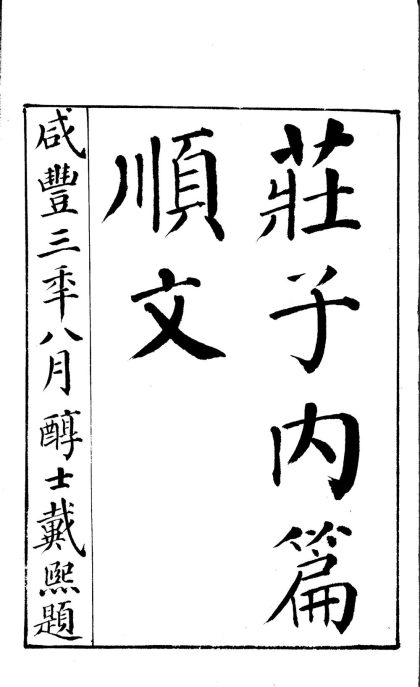 莊子内篇
順文
咸豐三秊八月醇士戴熙題